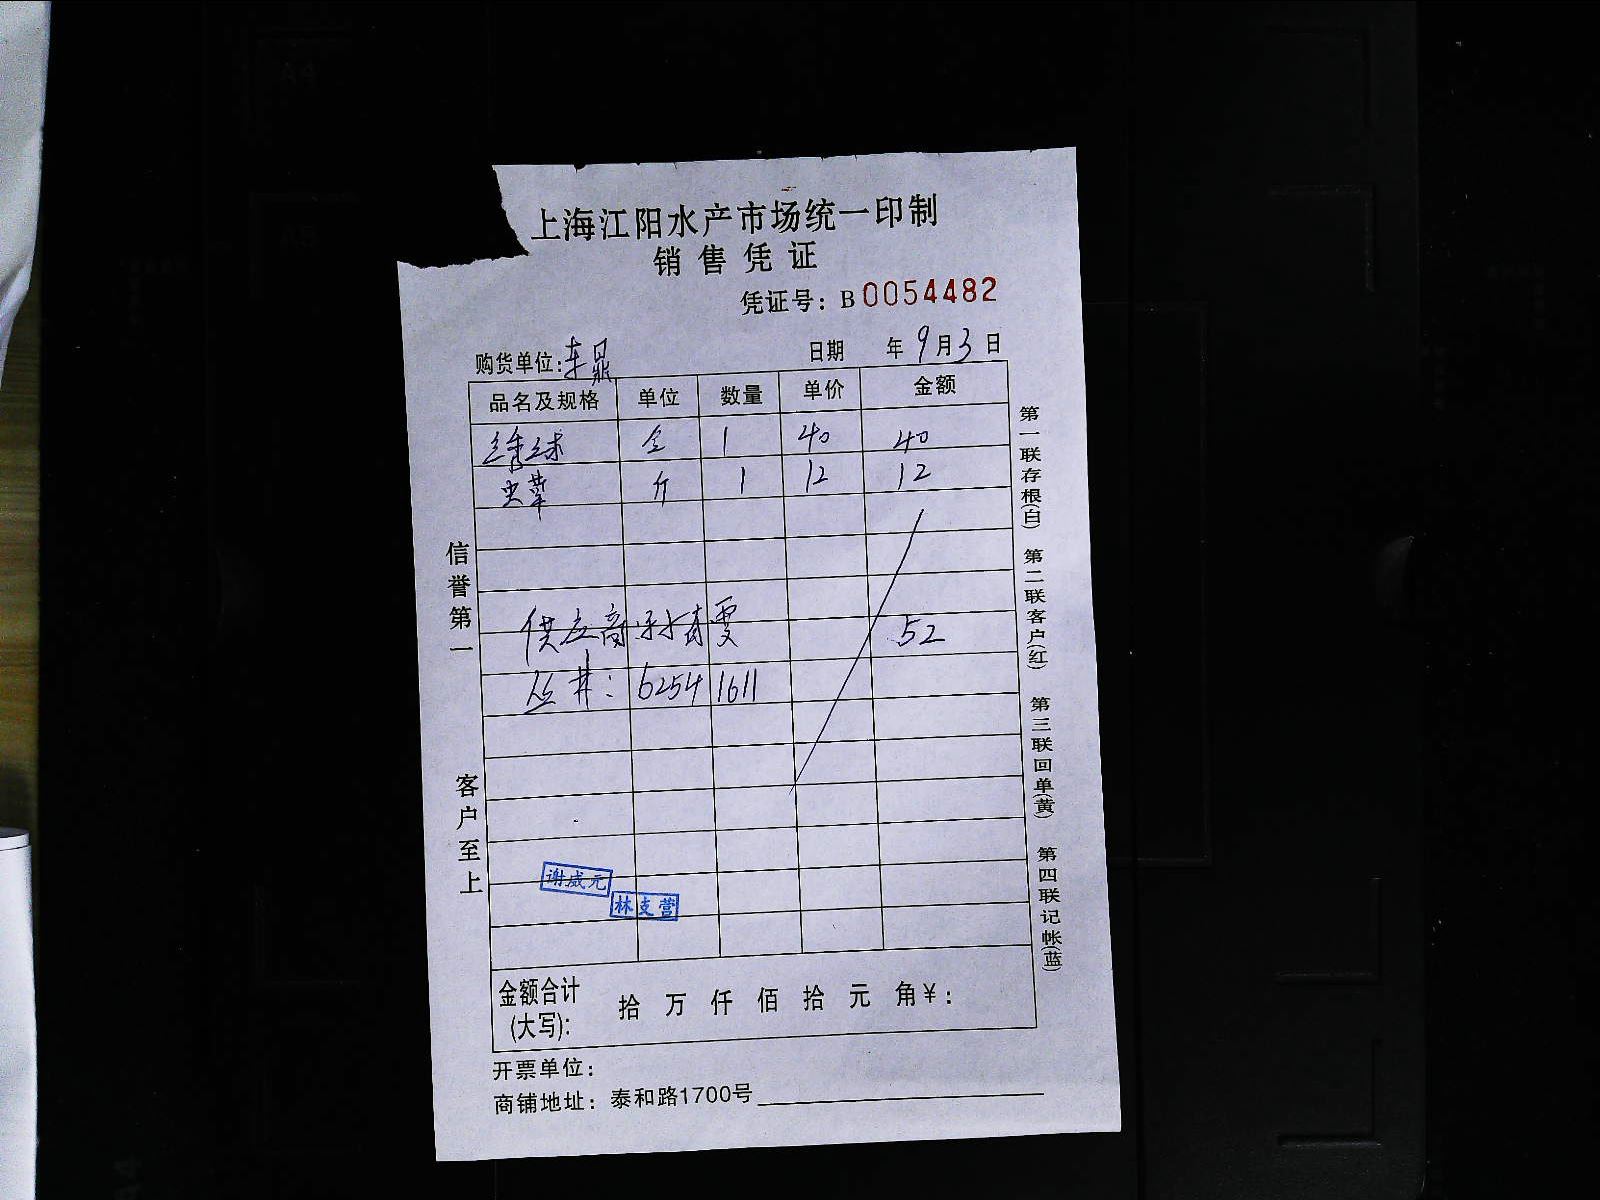 上海江阳水产市场统一印制
销售凭证
凭证号：B 0054482
购货单位: 东晨 日期 年 9 月 3 日
品名及规格 单位 数量 单价 金额
绣球 1 40 40
斤 1 12 12
供应商 52
丛井：6254 1611
谢威元
林支营
金额合计(大写): 拾 万 仟 佰 拾 元 角 ¥：
开票单位：
商铺地址：泰和路1700号
信誉第一 客户至上
第一联存根(白) 第二联客户(红) 第三联回单(黄) 第四联记帐(蓝)